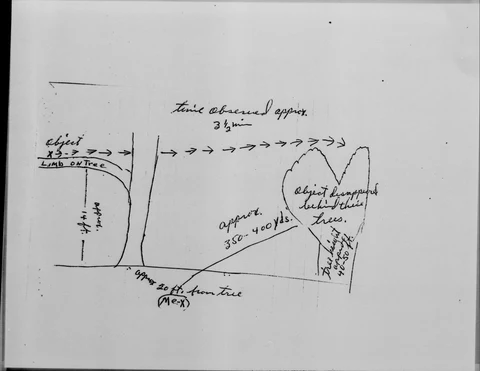 time observed approx.
3 1/2 min
object
LIMB ON TREE
approx.
14 ft.
Object disappeared
behind these
trees.
approx.
350-400 yds.
tree height
approx
40-50 ft.
approx 20 ft. from tree
(Me-X)